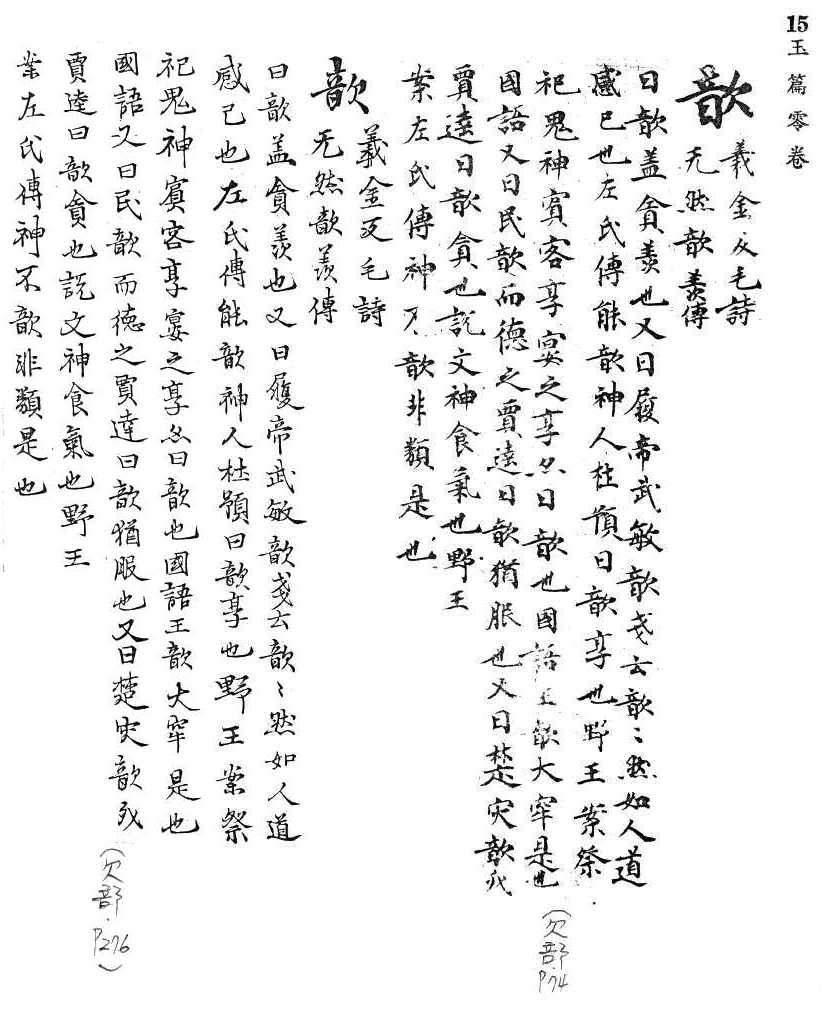 15 玉篇零卷
歆
義金反毛詩
无然歆羨傳
曰歆盖貪羨也又曰履帝武敏歆戔云歆〻然如人道
感已也左氏傳能歆神人杜預曰歆享也野王案祭
祀鬼神賓客享宴之享亦曰歆也國語王歆大牢是也
國語又曰民歆而德之賈逵曰歆猶服也又曰楚灾歆
賈逵曰歆貪也說文神食氣也野王
案左氏傳神不歆非類是也
(欠部 P74
歆
義金反毛詩
无然歆羨傳
曰歆盖貪羨也又曰履帝武敏歆戔云歆〻然如人道
感已也左氏傳能歆神人杜預曰歆享也野王案祭
祀鬼神賓客享宴之享亦曰歆也國語王歆大牢是也
國語又曰民歆而德之賈逵曰歆猶服也又曰楚灾歆
賈逵曰歆貪也說文神食氣也野王
案左氏傳神不歆非類是也
(欠部·P276)